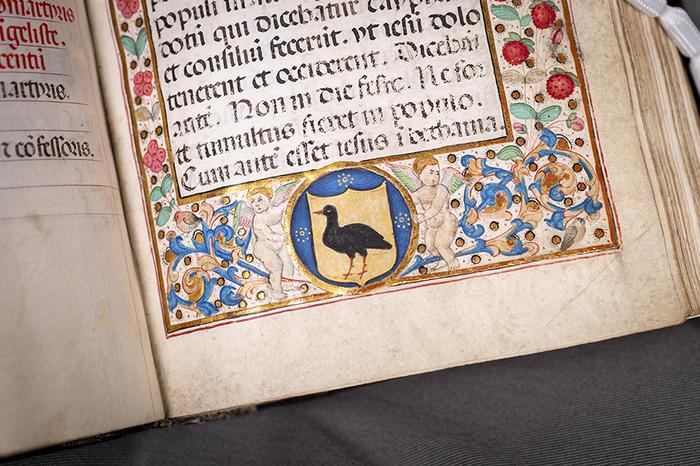 martyris
geliste.
centi
martyris.
n cõfessoris.
populi in
dotũ qui dicebatur Cayphas
et consiliũ fecerũt. vt iesũ dolo
tenerent et occiderent. Dicebãt
autẽ. Non in die festo. Ne for
te tumultus fieret in populo.
Cum autẽ esset iesus ĩ bethania